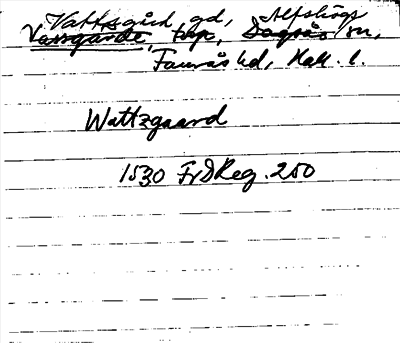 Vattsgård, gd, Alfshögs
Vassgårde, torp, Dagsås sn,
Faurås hd, Hall. l.
Wattzgaard
1530 FrDReg. 250